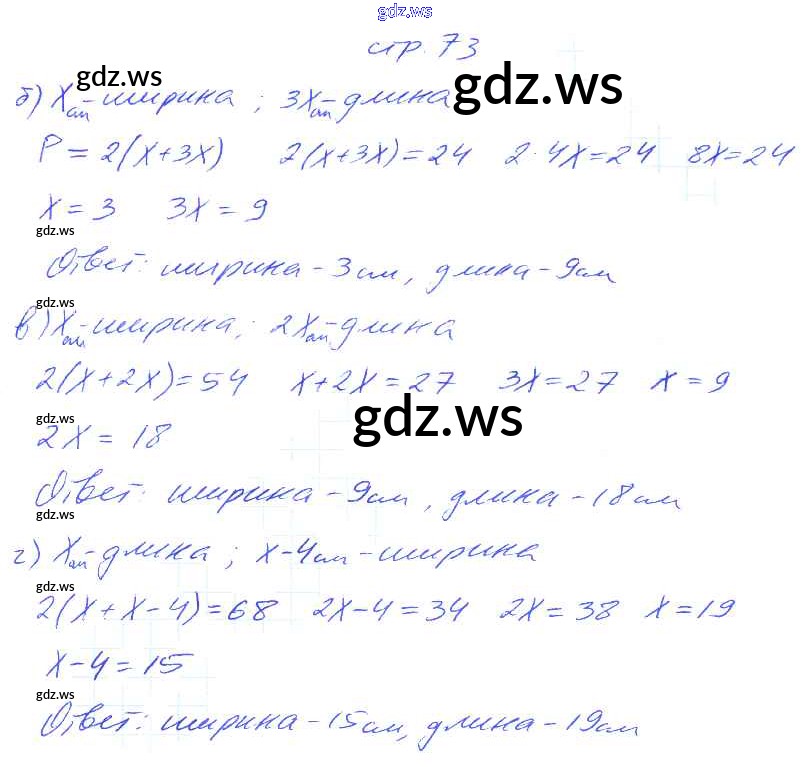 gdz.ws
стр. 73
gdz.ws
gdz.ws
б) X см - ширина ; 3X см - длина
P = 2(X+3X) 2(X+3X)=24 2·4X=24 8X=24
X = 3 3X = 9
gdz.ws
Ответ: ширина - 3 см, длина - 9 см
gdz.ws
в) X см - ширина; 2X см - длина
2(X+2X)=54 X+2X=27 3X=27 X=9
gdz.ws
gdz.ws
2X = 18
Ответ: ширина - 9 см, длина - 18 см
gdz.ws
г) X см - длина ; X-4 см - ширина
gdz.ws
2(X+X-4)=68 2X-4=34 2X=38 X=19
X-4=15
gdz.ws
Ответ: ширина - 15 см, длина - 19 см